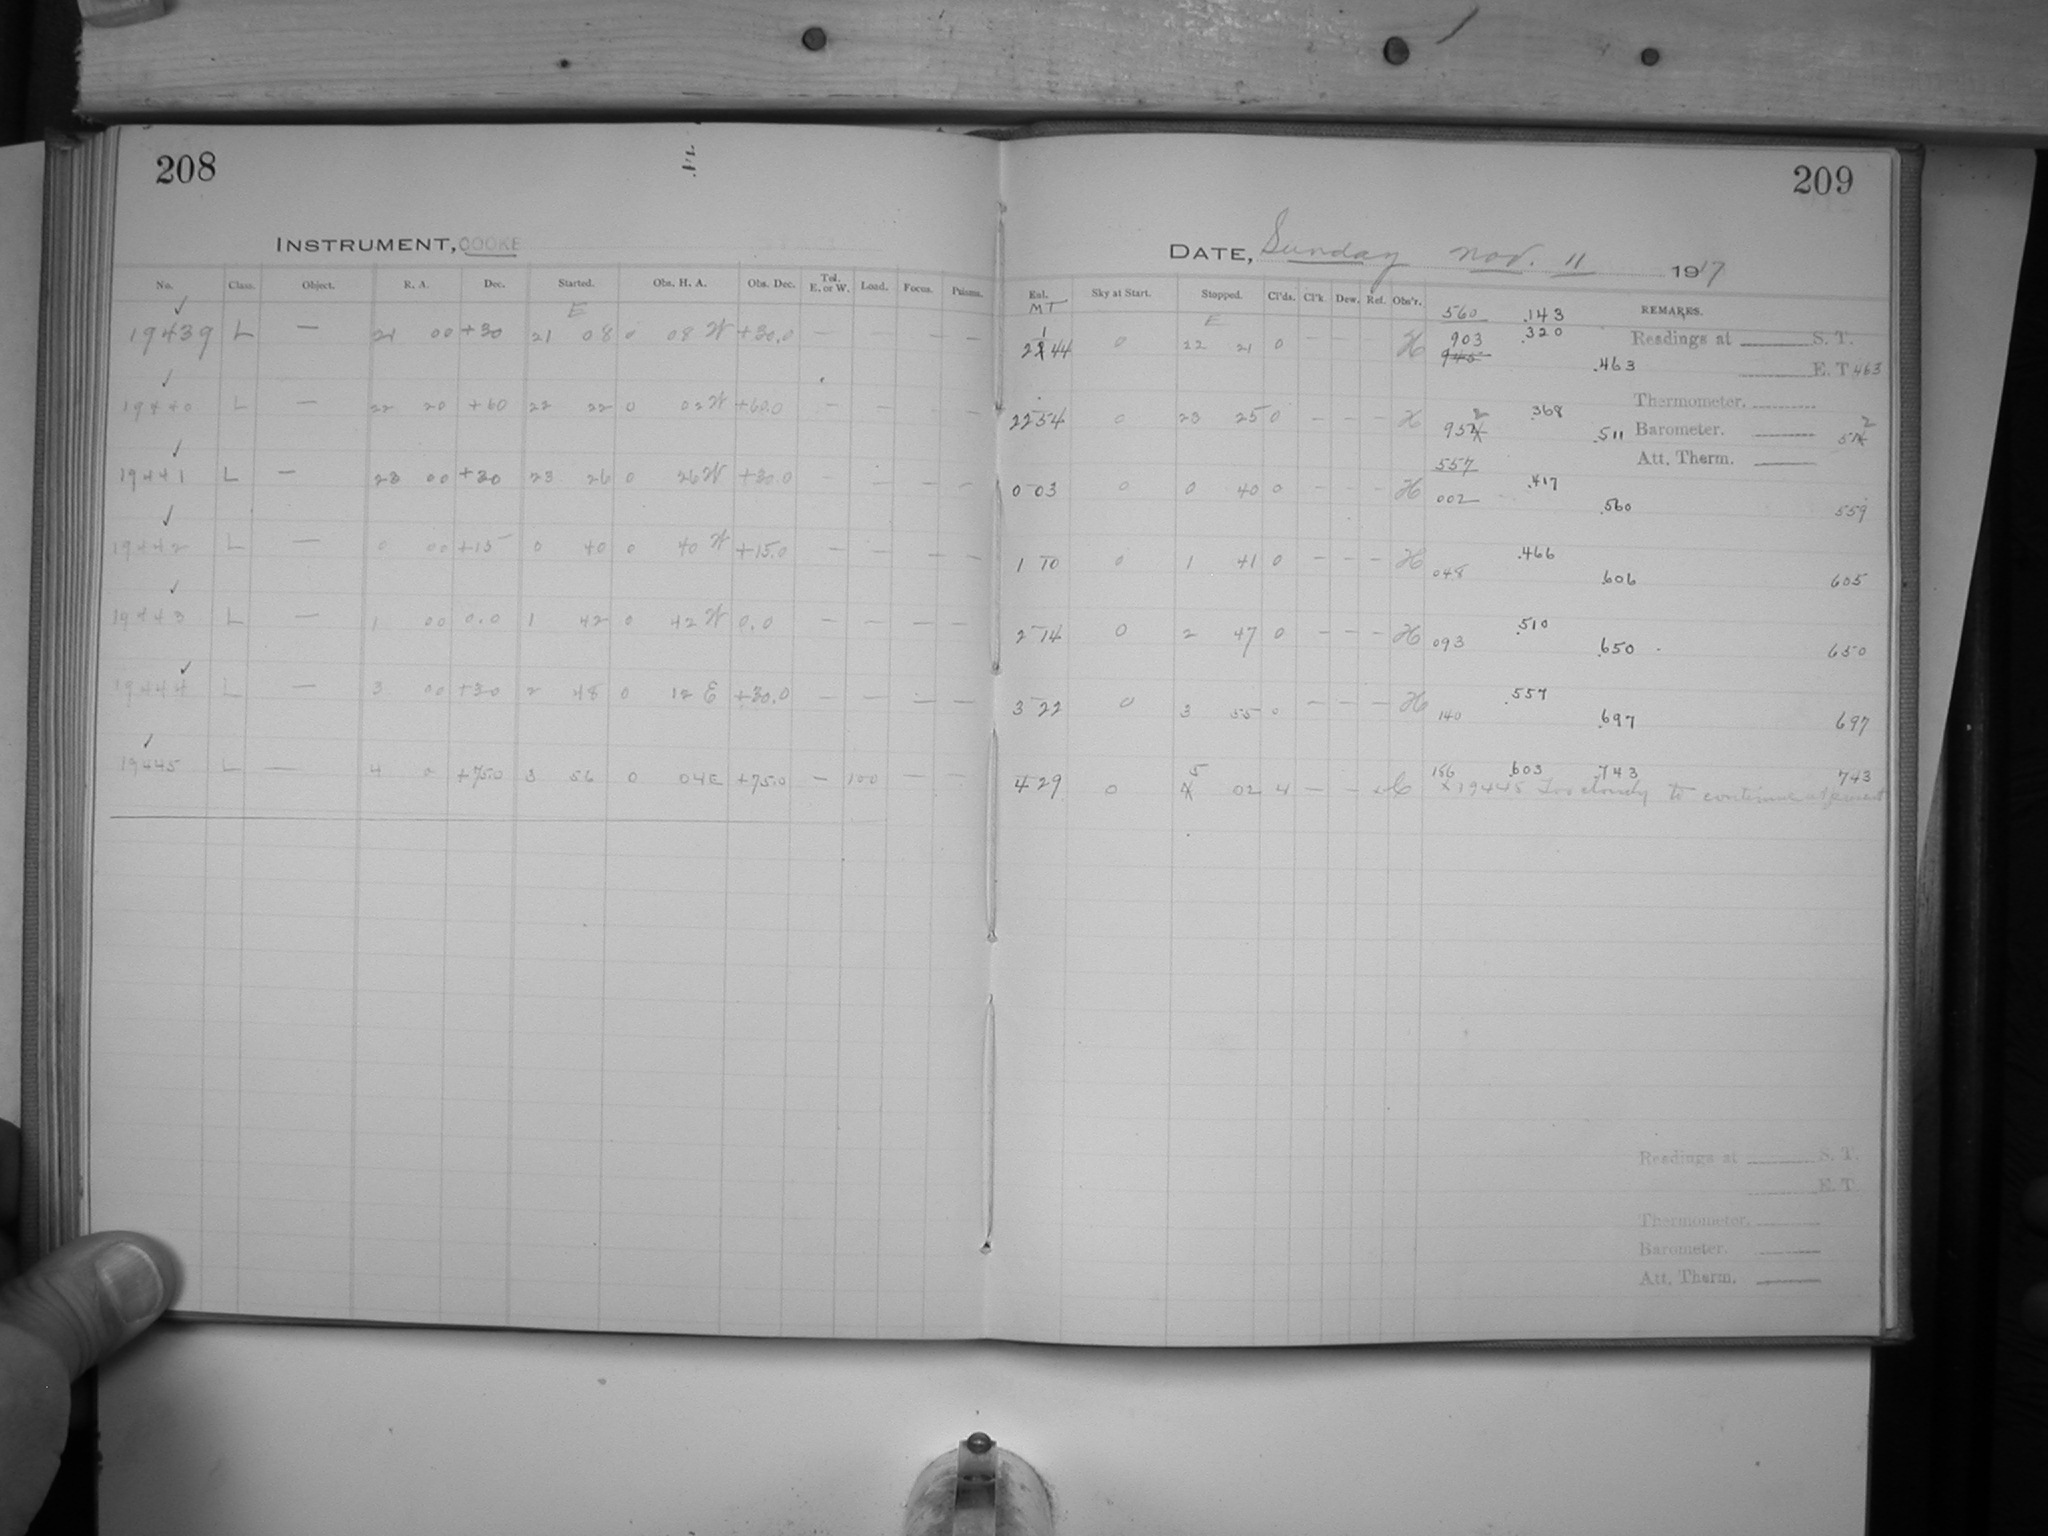 208
INSTRUMENT, COOKE
No. Class. Object. R. A. Dec. Started. Obs. H. A. Obs. Dec. Tel. E. or W. Load. Focus. Prisms.
E
19439 L — 21 00 +30 21 08 0 08 W +30.0 — — — —
19440 L — 22 20 +60 22 22 0 02 W +60.0 — — — —
19441 L — 23 00 +30 23 26 0 26 W +30.0 — — — —
19442 L — 0 00 +15 0 40 0 40 W +15.0 — — — —
19443 L — 1 00 0.0 1 42 0 42 W 0.0 — — — —
19444 L — 3 00 +30 2 48 0 12 E +30.0 — — — —
19445 L — 4 0 +75.0 3 56 0 04 E +75.0 — 100 — —
209
DATE, Sunday Nov. 11 1917
Sky at Start. Stopped. Cl'ds. Cl'k. Dew. Ref. Obs'r. REMARKS.
MT E 560 .143
21 44 0 22 21 0 — — — H 903 .320 Readings at S. T.
945 .463 E. T. 463
Thermometer.
22 54 0 23 25 0 — — — H 952 .368 .511 Barometer. 512
557 Att. Therm.
0 03 0 0 40 0 — — — H 002 .417 .560 559
1 10 0 1 41 0 — — — H 048 .466 .606 605
2 14 0 2 47 0 — — — H 093 .510 .650 650
3 22 0 3 55 0 — — — H 140 .557 .697 697
4 29 0 5 02 4 — — 186 .603 .743 743
x 19445 Too cloudy to continue at present
Readings at S. T.
E. T.
Thermometer.
Barometer.
Att. Therm.